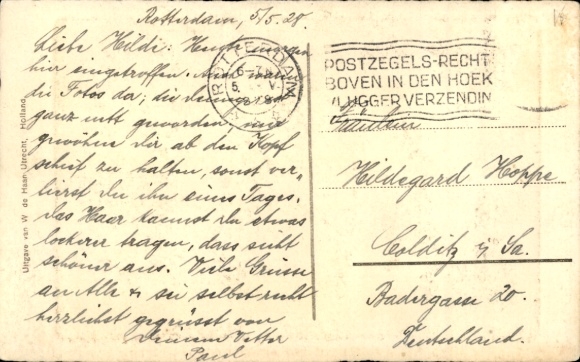 Rotterdam, 5/5.28.
Liebe Hildi: Heute morgen
hier eingetroffen. und waren
die Fotos da; die
ganz nett geworden, nur
gewöhne dir ab den Kopf
schief zu halten, sonst ver-
lierst du ihn eines Tages.
das Haar kannst du etwas
lockerer tragen, dass sieht
schöner aus. Viele Grüsse
an Alle & sei selbst recht
herzlichst gegrüsst von
deinem Vetter
Paul
ROTTERDAM
5. V.
1928
POSTZEGELS-RECHT
BOVEN IN DEN HOEK
VLUGGER VERZENDIN
Fräulein
Hildegard Hoppe
Colditz i/Sa.
Badergasse 20.
Deutschland.
Uitgave van W. de Haan, Utrecht, Holland